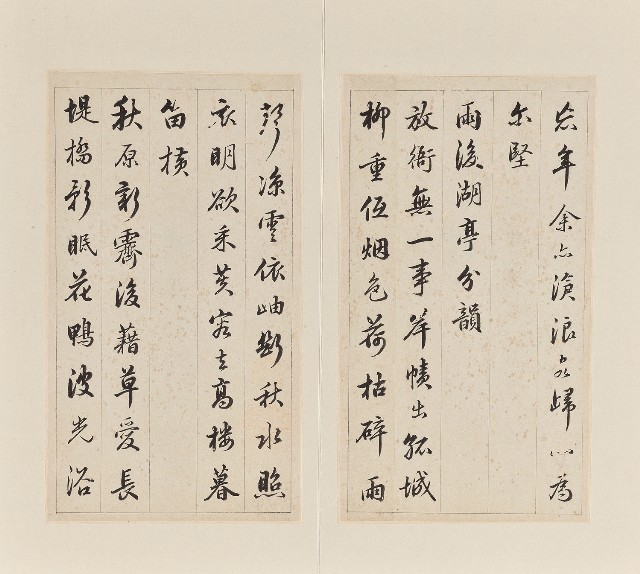 忘年余亦滄浪客歸心爲
尔堅
雨後湖亭分韻
放衙無一事岸幘出孤城
柳重低烟色荷枯碎雨
聲凉雲依岫斷秋水照
衣明欲采芙蓉去高樓暮
笛横
秋原新霽後藉草愛長
堤橋影眠花鴨波光浴